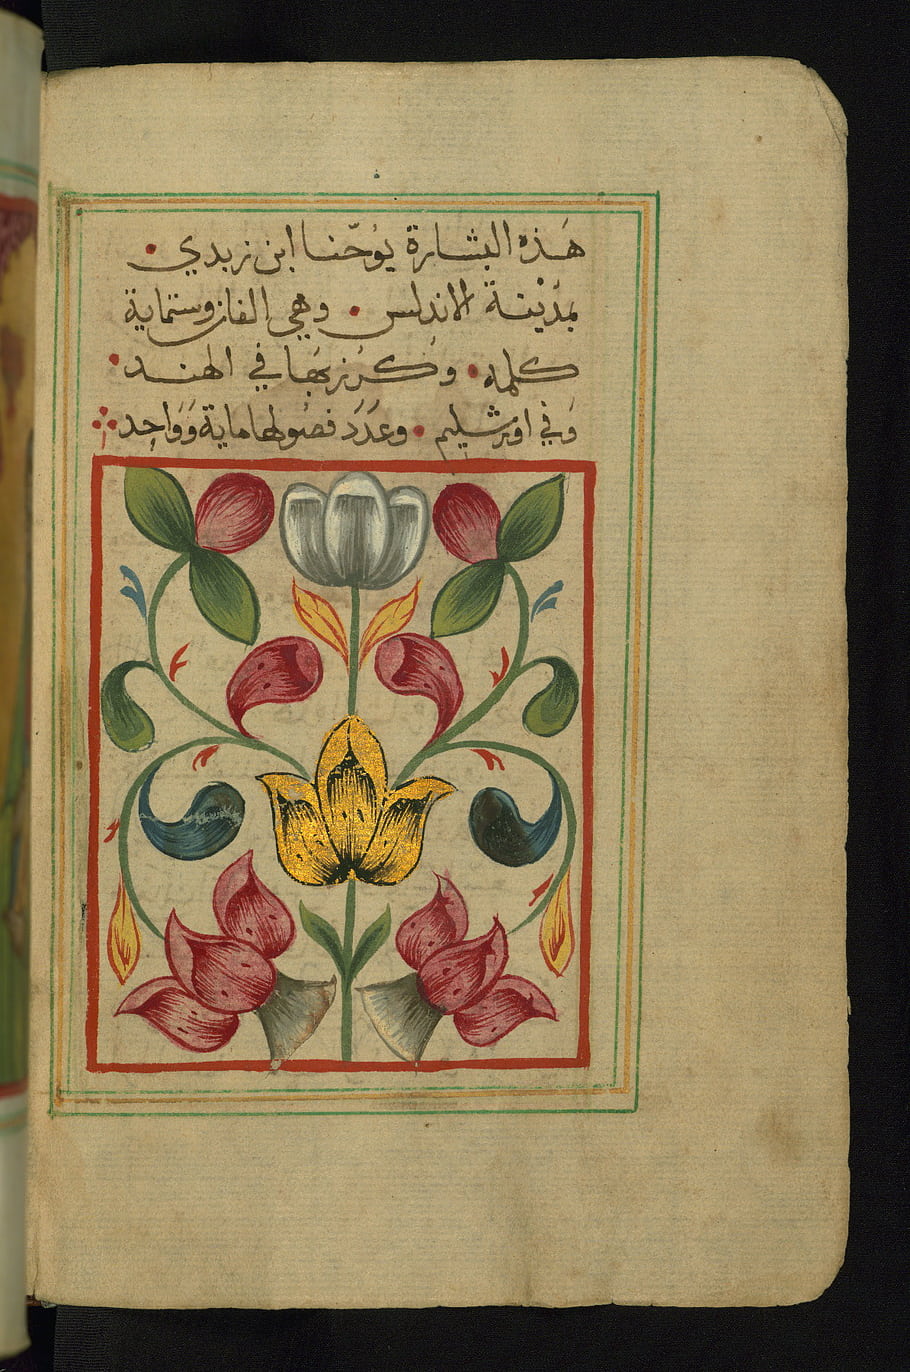 هَذه البشارة يُوحّنا ابن زبدي •
بمدُيْنة الاندلس • وهي الفان وستماية
كلمه • وَكَرُزبهَا في الهند •
وَفي اوبرشليم • وعدَدَ فصُولها ماية وَوَاحِد